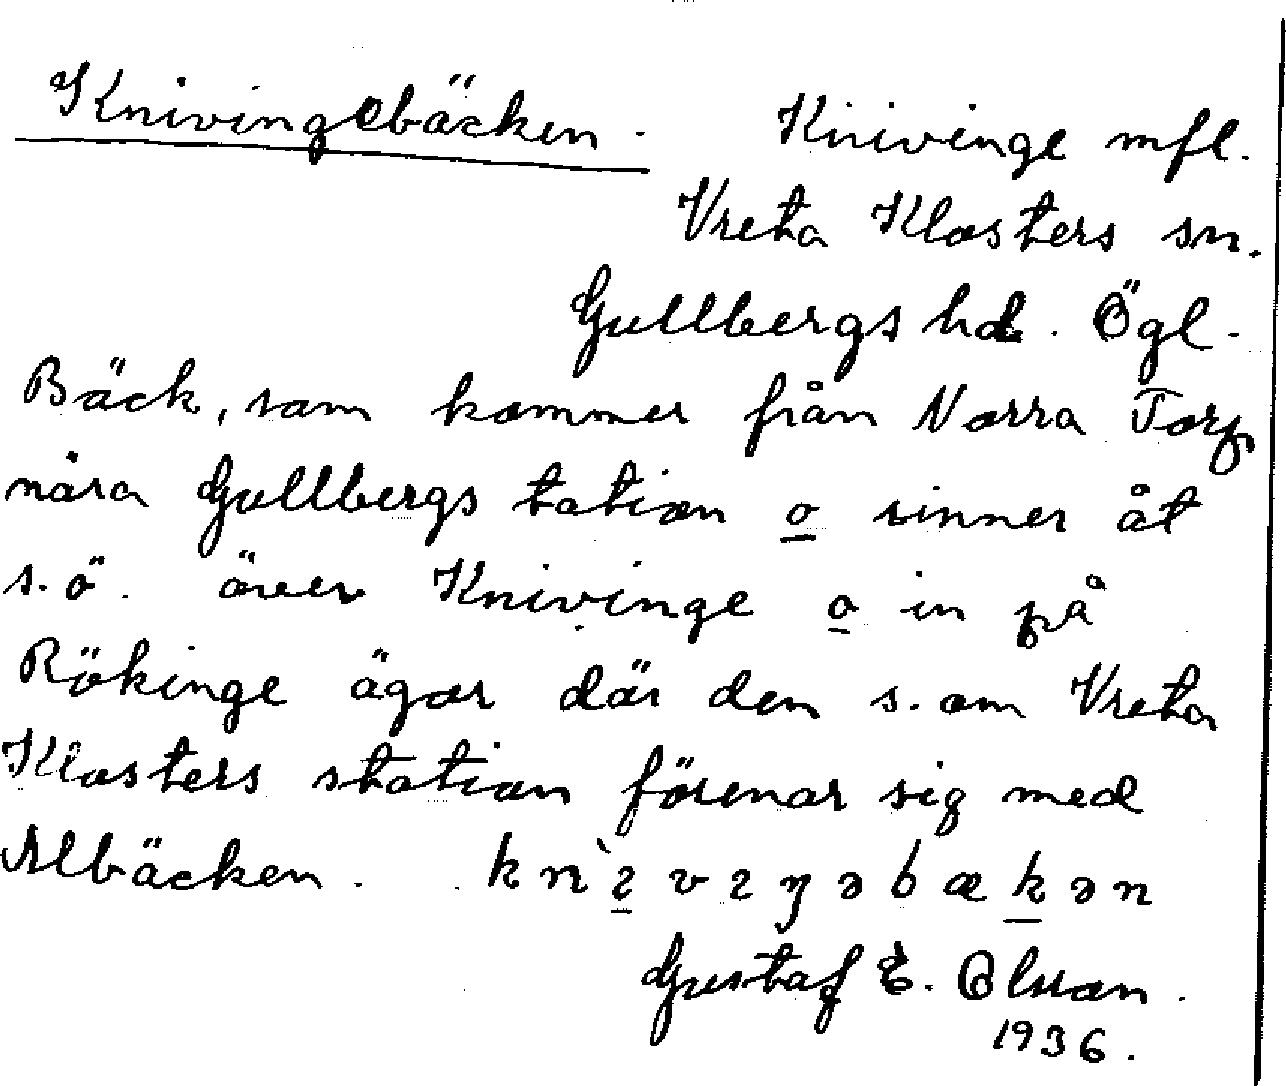 Knivingebäcken. Knivinge mfl.
Vreta Klosters sn.
Gullbergs hd. Ögl.
Bäck, som kommer från Norra Torp
nära Gullbergs tation o rinner åt
s.ö. över Knivinge o in på
Rökinge ägor där den s. om Vreta
Klosters station förenar sig med
Albäcken.
Gustaf E. Olsson.
1936.